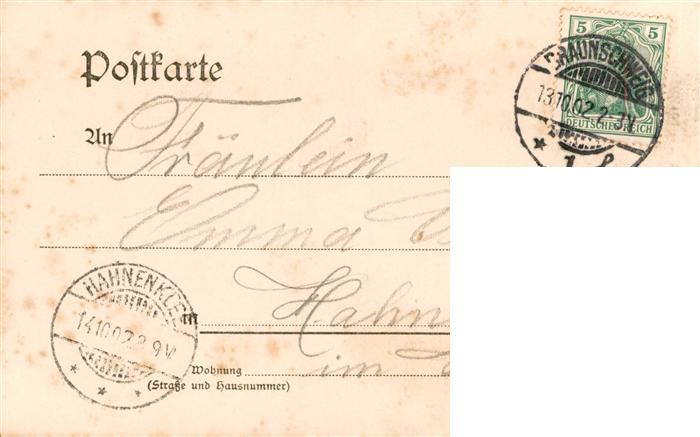 5 5
DEUTSCHES REICH
BRAUNSCHWEIG
13.10.02.2-3N.
* 1
Postkarte
An Fräulein
Emma
HAHNENKLEE
14.10.02.8-9V.
* * *
in
Wohnung im
(Straße und Hausnummer)